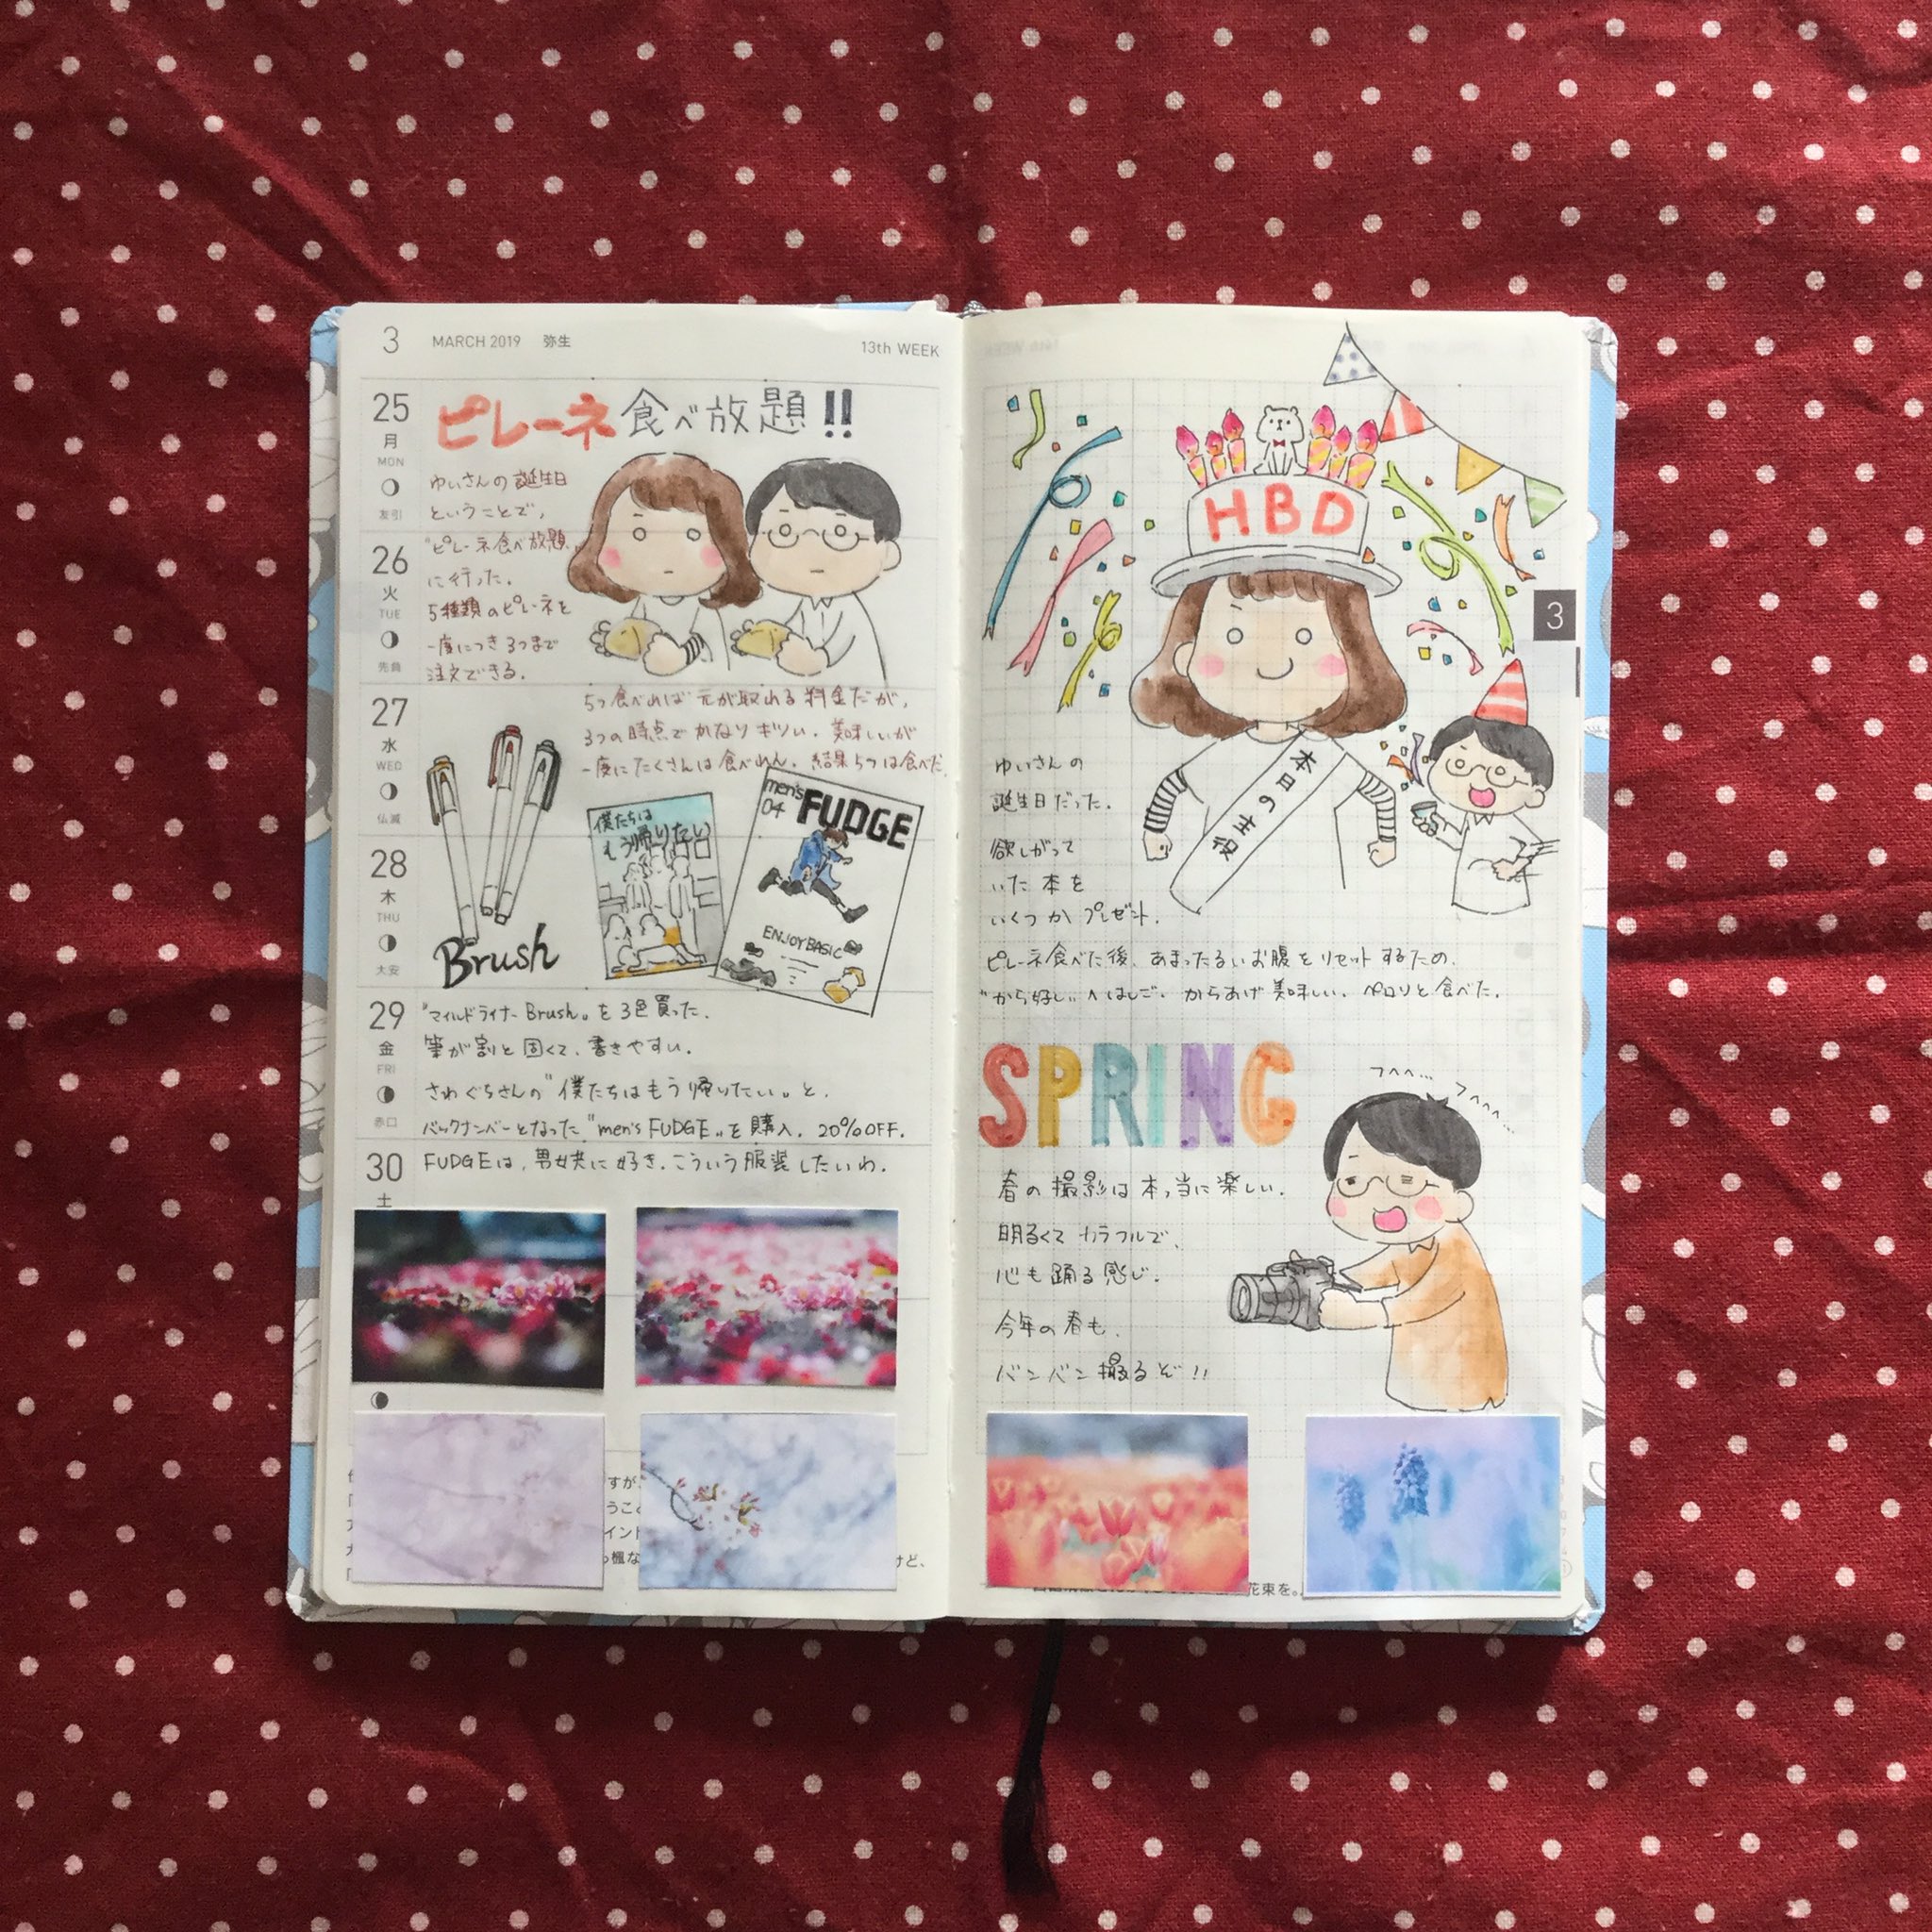 3 MARCH 2019 弥生 13th WEEK
25
月
MON
友引
26
火
TUE
先負
27
水
WED
仏滅
28
木
THU
大安
29
金
FRI
赤口
30
土
ピレーネ食べ放題!!
ゆいさんの誕生日
ということで、
"ピレーネ食べ放題"
に行った。
5種類のピレーネを
一度につき3つまで
注文できる。
5つ食べれば元が取れる料金だが、
3つの時点でかなりキツい。美味しいが
一度にたくさんは食べれん。結果5つは食べた。
Brush
僕たちは
もう帰りたい
men's
04
FUDGE
ENJOY BASIC
"マイルドライナーBrush"を3色買った。
筆が割と固くて、書きやすい。
さわぐちさんの"僕たちはもう帰りたい"と、
バックナンバーとなった"men's FUDGE"を購入。20%OFF.
FUDGEは、男女共に好き。こういう服装したいわ。
すが、
うこ
イント
楓な
けど、
HBD
3
本日の主役
ゆいさんの
誕生日だった。
欲しがって
いた本を
いくつかプレゼント。
ピレーネ食べた後、あまったるいお腹をリセットするため、
"から好し"へはしご。からあげ美味しい。ペロリと食べた。
SPRING
フヘヘ…
フヘヘヘ…
春の撮影は本当に楽しい。
明るくてカラフルで、
心も踊る感じ。
今年の春も、
バンバン撮るぞ!!
花束を。